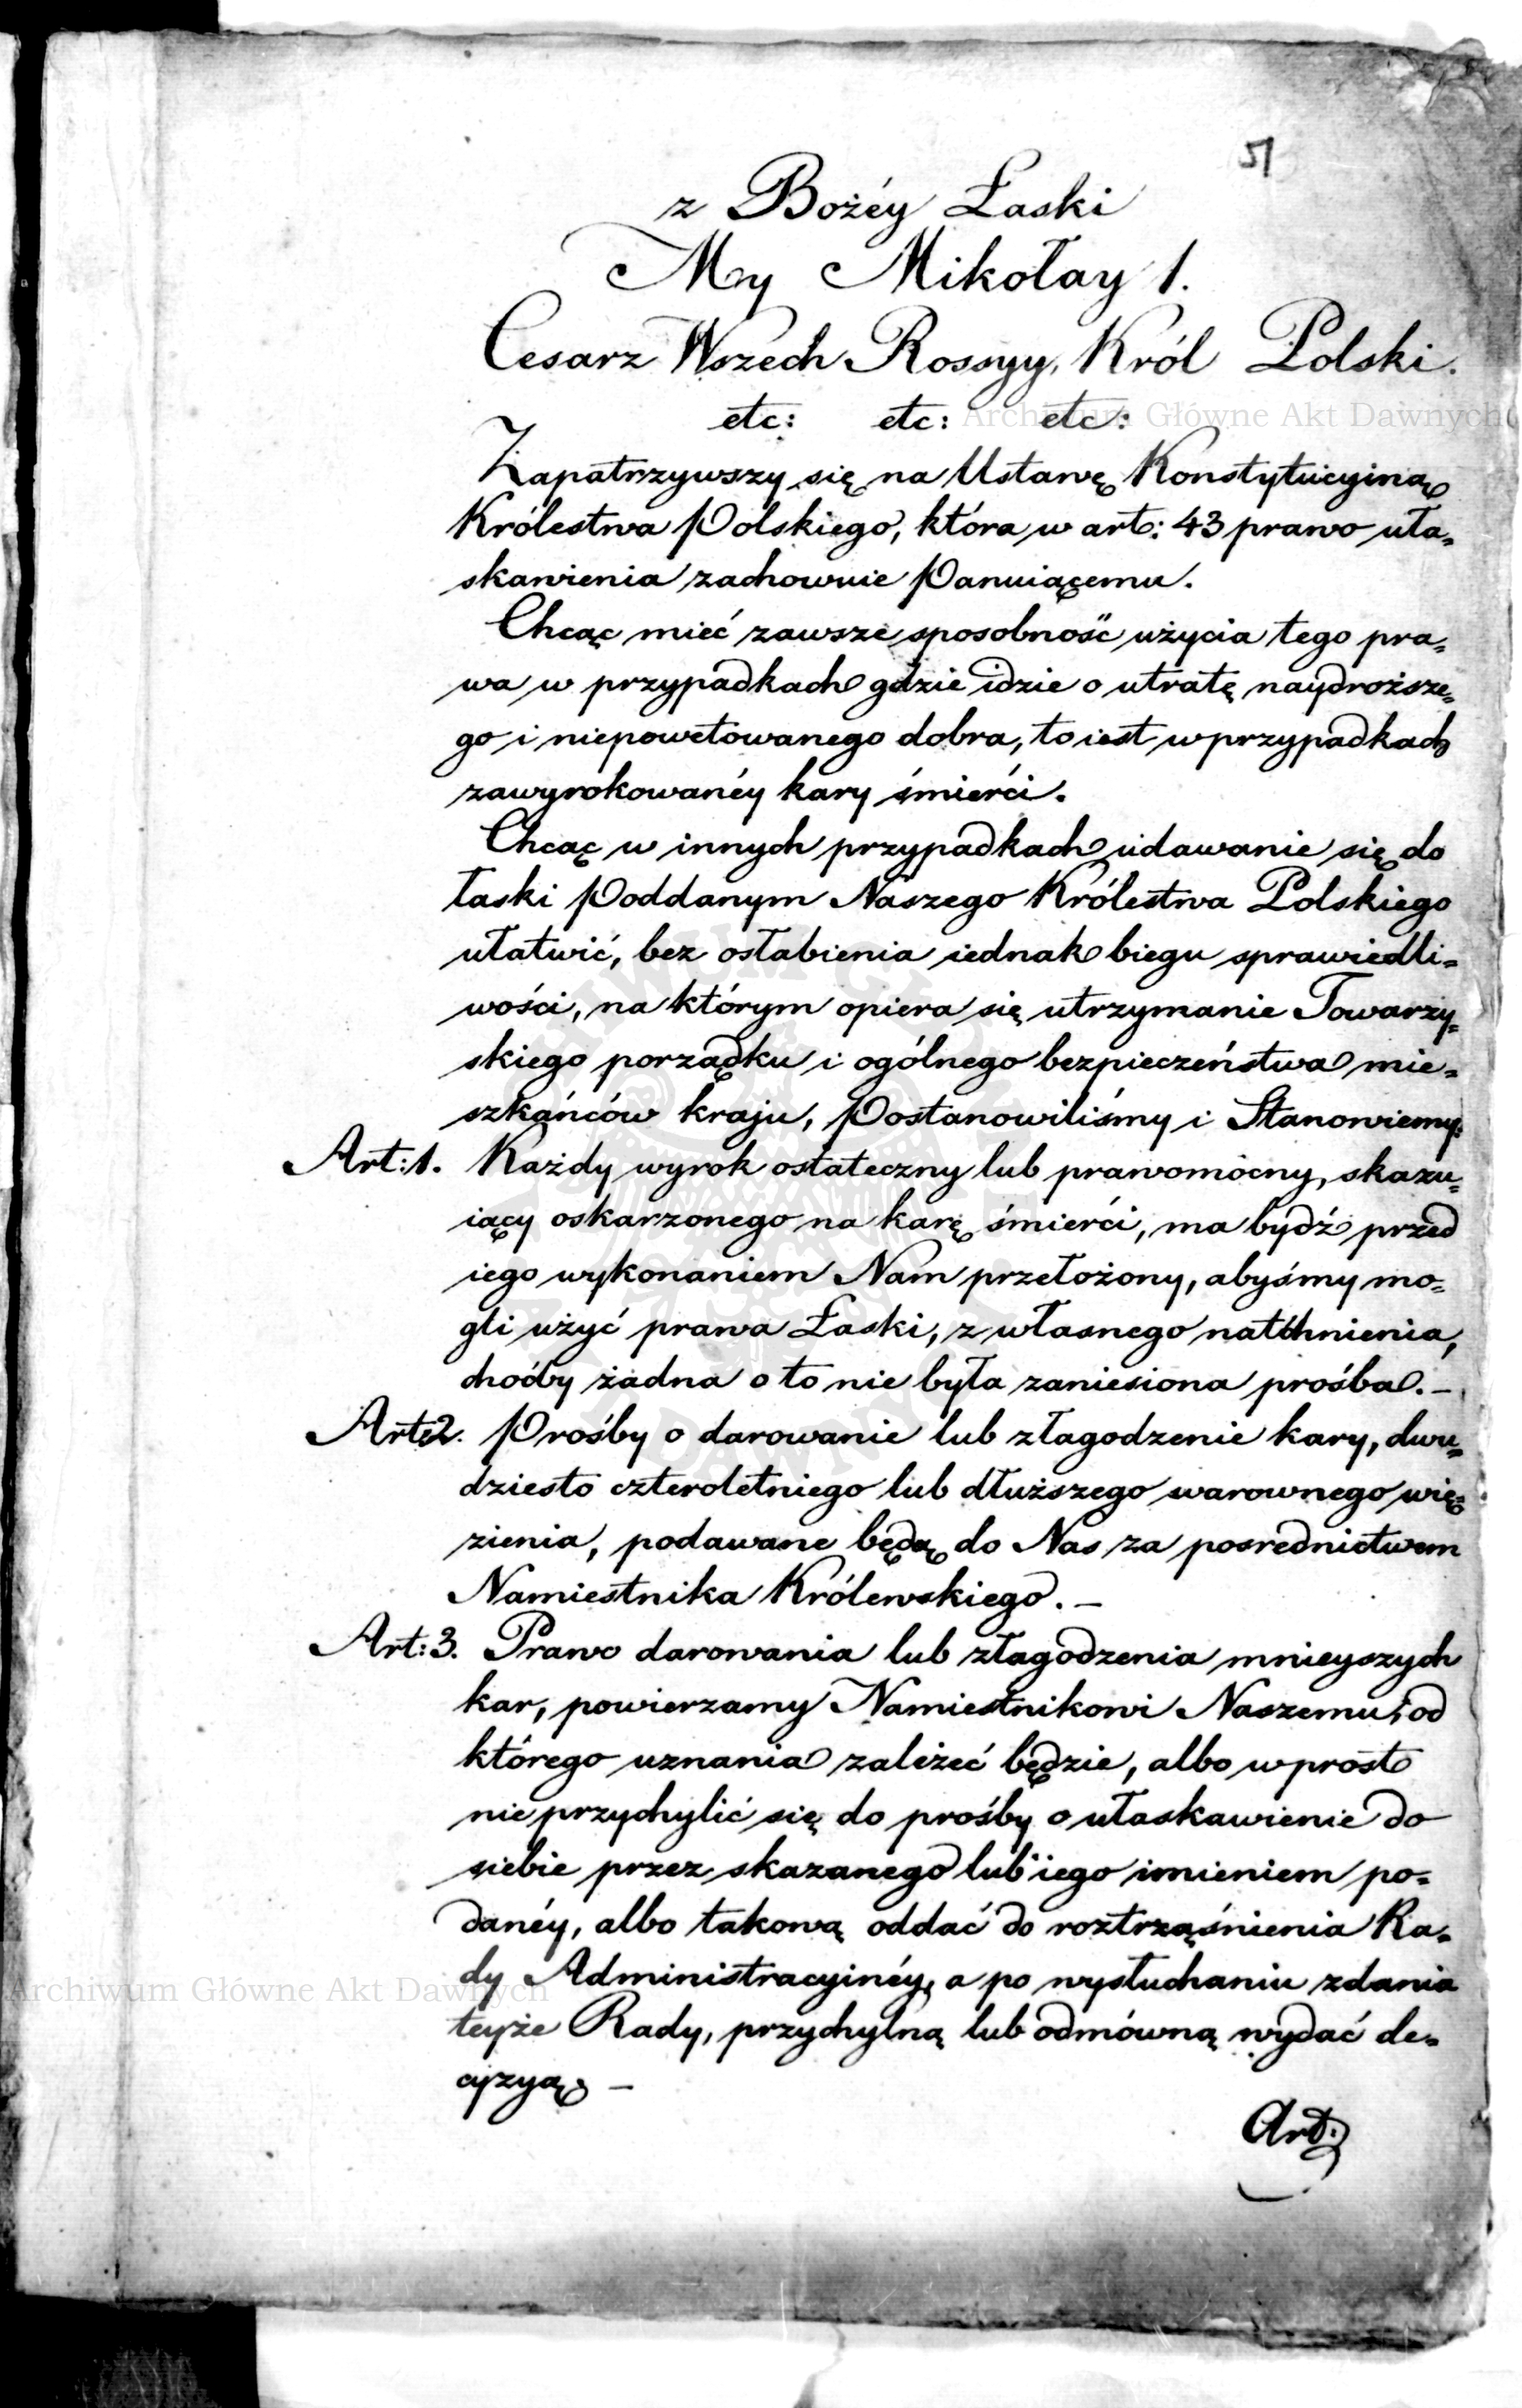 51
z Bożéy Łaski
My Mikołay 1.
Cesarz Wszech Rossyy, Król Polski.
etc: etc: etc:
Archiwum Główne Akt Dawnych
Zapatrzywszy się na Ustawę Konstytucyiną
Królestwa Polskiego, która w art: 43 prawo uła=
skawienia zachowuie Panuiącemu.
Chcąc mieć zawsze sposobność użycia tego pra=
wa w przypadkach gdzie idzie o utratę naydroższe=
go i niepowetowanego dobra, to iest w przypadkach
zawyrokowanéy kary śmierći.
Chcąc w innych przypadkach udawanie się do
łaski Poddanym Naszego Królestwa Polskiego
ułatwić, bez osłabienia iednak biegu sprawiedli=
wości, na którym opiera się utrzymanie Towarzy=
skiego porządku i ogólnego bezpieczeństwa mie=
szkańców kraju, Postanowiliśmy i Stanowiemy:
Art: 1. Każdy wyrok ostateczny lub prawomocny, skazu=
iący oskarzonego na karę śmierći, ma bydź przed
iego wykonaniem Nam przełożony, abyśmy mo=
gli użyć prawa Łaski, z własnego natchnienia,
choćby żadna o to nie była zaniesiona prośba. –
Art: 2. Prośby o darowanie lub złagodzenie kary, dwu=
dziesto czteroletniego lub dłuższego warownego wię=
zienia, podawane będą do Nas za posrednictwem
Namiestnika Królewskiego. –
Art: 3. Prawo darowania lub złagodzenia mnieyszych
kar, powierzamy Namiestnikowi Naszemu, od
którego uznania zależeć będzie, albo wprost
nie przychylić się do prośby o ułaskawienie do
siebie przez skazanego lub iego imieniem po=
danéy, albo takową oddać do roztrząśnienia Ra=
dy Administracyinéy, a po wysłuchaniu zdania
Archiwum Główne Akt Dawnych
teyże Rady, przychylną lub odmówną wydać de=
cyzyą. –
Art: